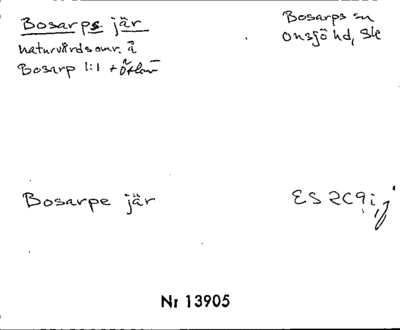 Bosarps jär
Bosarps sn
naturvårdsomr. å
Onsjö hd, Sk
Bosarp 1:1 +
Bosarpe jär
ES 2C9i,j
Nr 13905